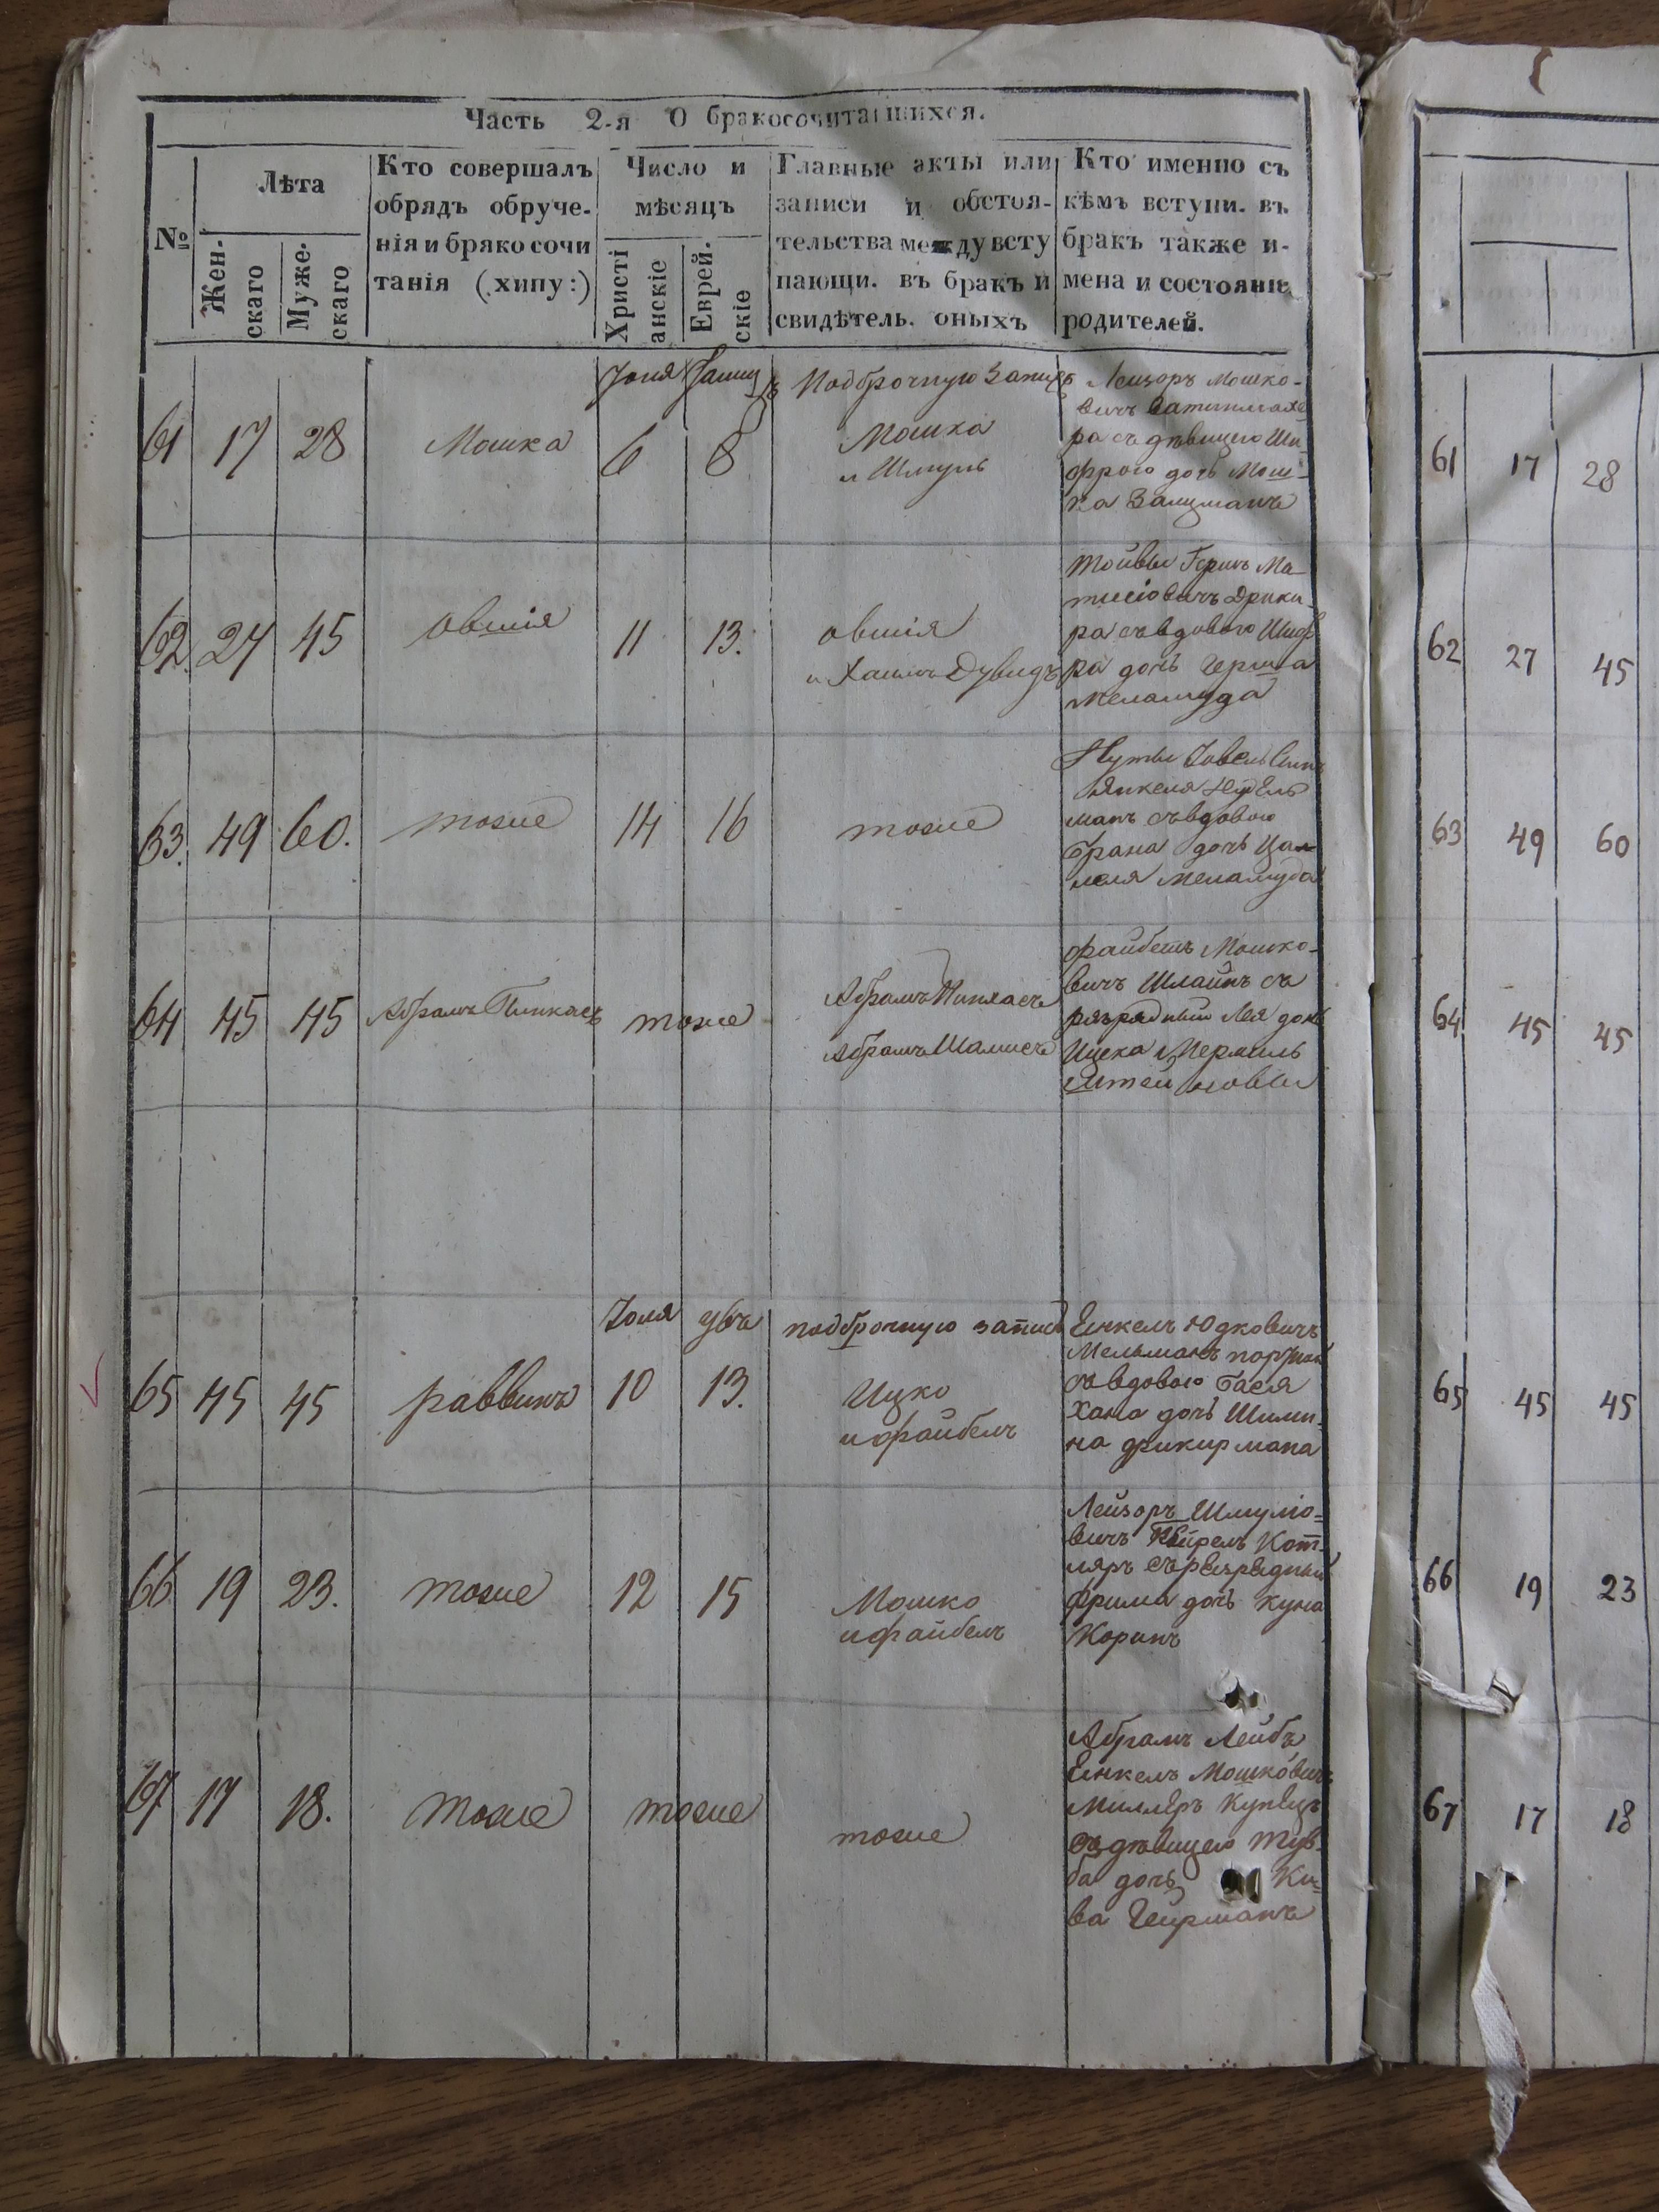 Часть 2-я О бракосочитавшихся.
№
Лѣта
Жен-
скаго
Муже-
скаго
Кто совершалъ
обрядъ обруче-
нія и бряко сочи
танія (хипу:)
Число и
мѣсяцъ
Христі
анскіе
Еврей-
скіе
Главные акты или
записи и обстоя-
тельства между всту
пающи. въ бракъ и
свидѣтель. оныхъ
Кто именно съ
кѣмъ вступи. въ
бракъ также и-
мена и состояніе
родителей.
61 17 28 Мошка
Іюня
6 8
Подброчную Запись
Мошка
и Шмуль
Лейзоръ Мошко-
вичъ
ра съ дѣвицею Ши-
фрою дочь Мош-
ка Залцманъ
62. 27 45 Овшія 11 13.
овшія
и Хаимъ Дувидъ
Тойвы Гершъ Ма-
тисіовичъ Дрики-
ра съ вдовою Шиф
ра дочь Герша
Меламуда
63. 49 60. тоже 14 16 тоже
Нуты
Янкеля
манъ съ вдовою
Брана дочь
Меламуда
64 45 45 Абрамъ Пинкасъ тоже
Абрамъ Пинкасъ
Абрамъ Шамисъ
Файбешъ Мошко-
вичъ Шлайнъ съ
разрадный Лея дочь
Ицека
65 45 45 раввинъ
Іюля
10 13.
подброчную запись
Ицко
и Файбель
Еинкель Юдковичъ
Мельманъ
съ вдовою Бася
Хана дочь Шлии-
на фрикирмана
66 19 23. тоже 12 15
Мошко
и файбель
Лейзоръ Шмуліо-
вичъ Кот-
ляръ съ разрадный
Фрима дочь Куна
Коринъ
67 17 18. тоже тоже тоже
Абрамъ Лейбъ
Еинкель Мошковичъ
Миллеръ Купецъ
съ дѣвицею Тув-
ба дочь Ки-
ва Гейрманъ
61 17 28
62 27 45
63 49 60
64 45 45
65 45 45
66 19 23
67 17 18